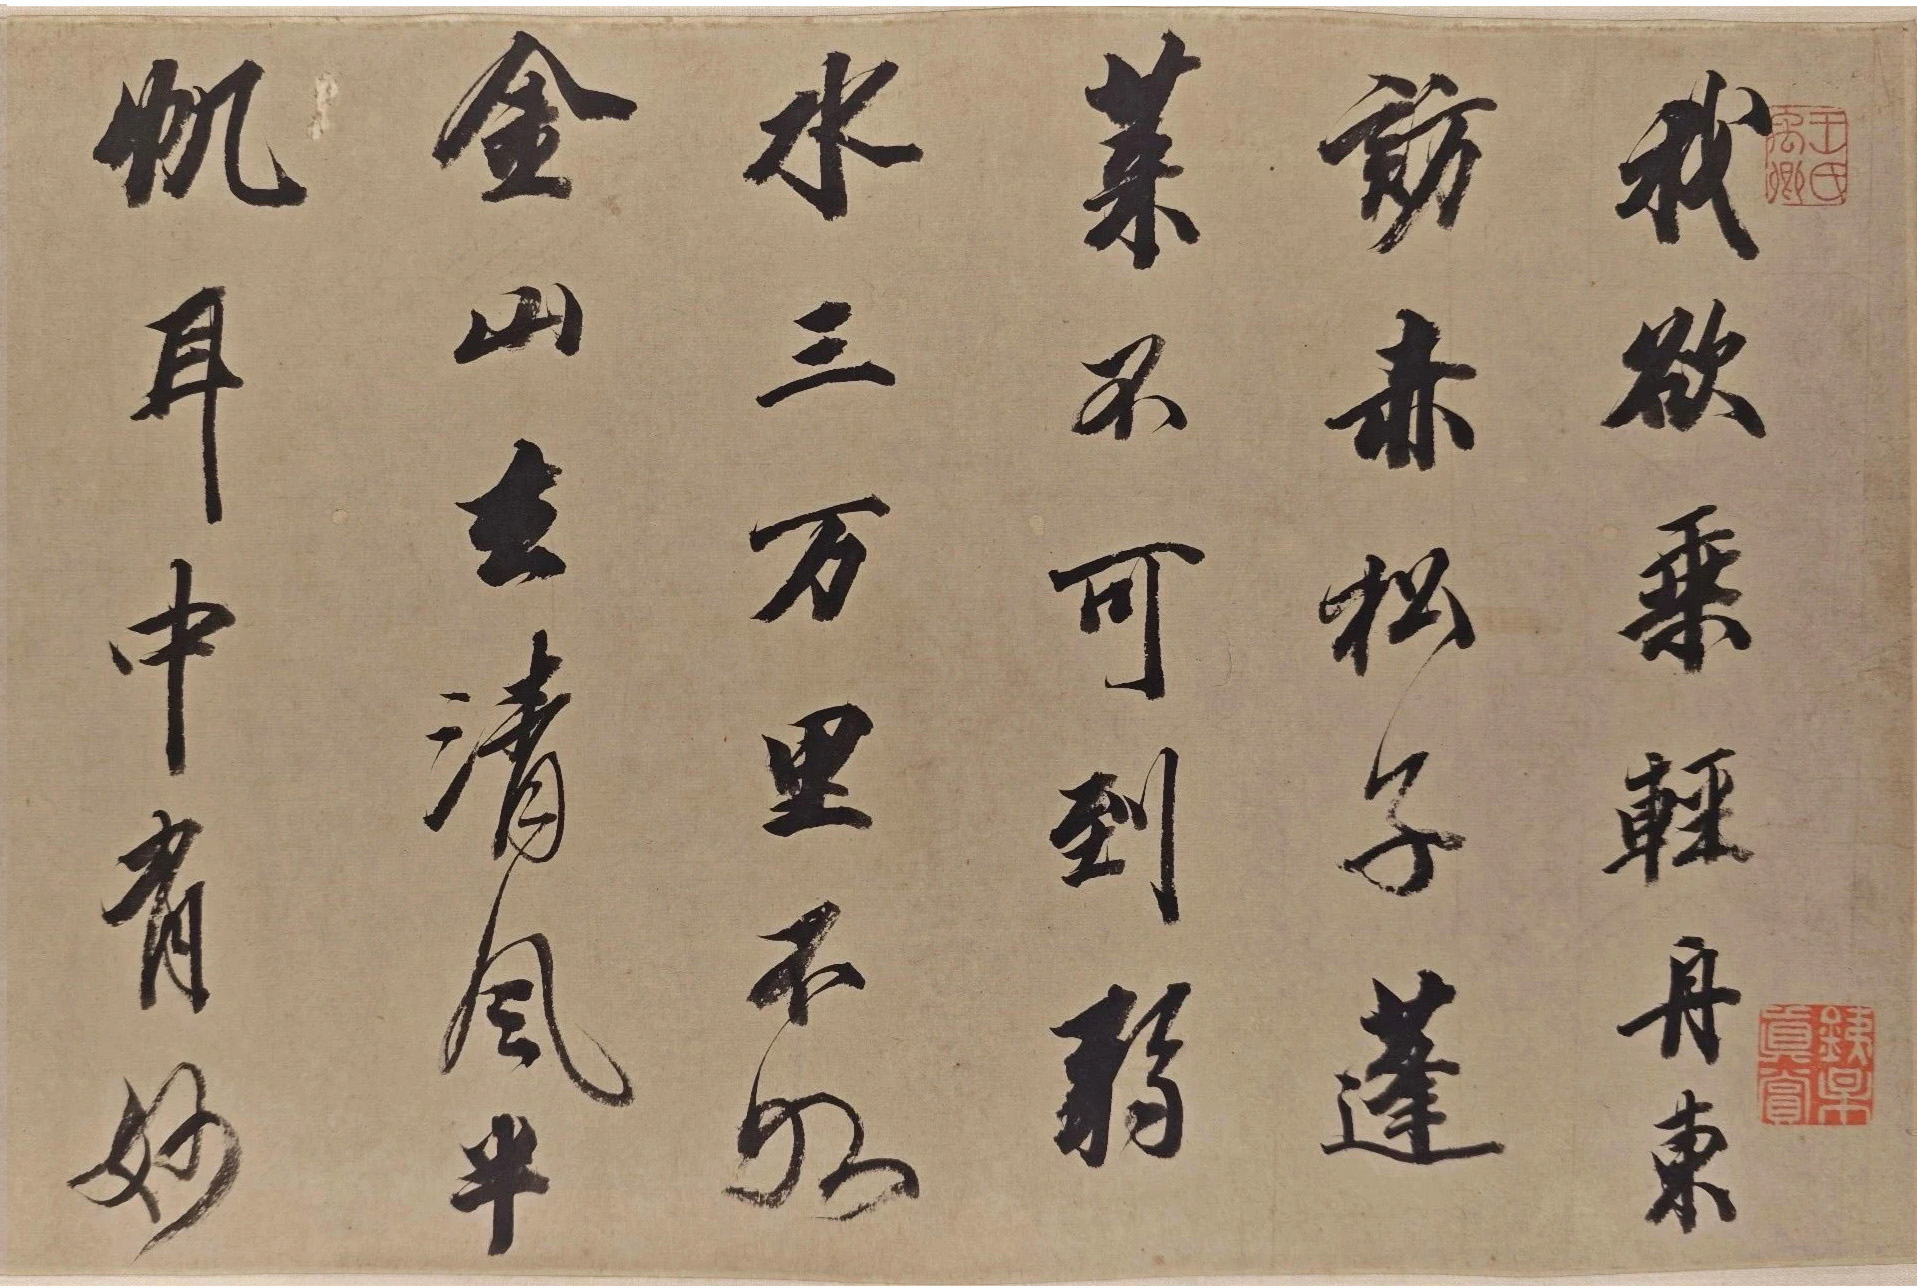 我欲乗輕舟東
訪赤松子蓬
萊不可到弱
水三万里不如
金山去清風半
帆耳中有妙
王氏禹卿
真賞